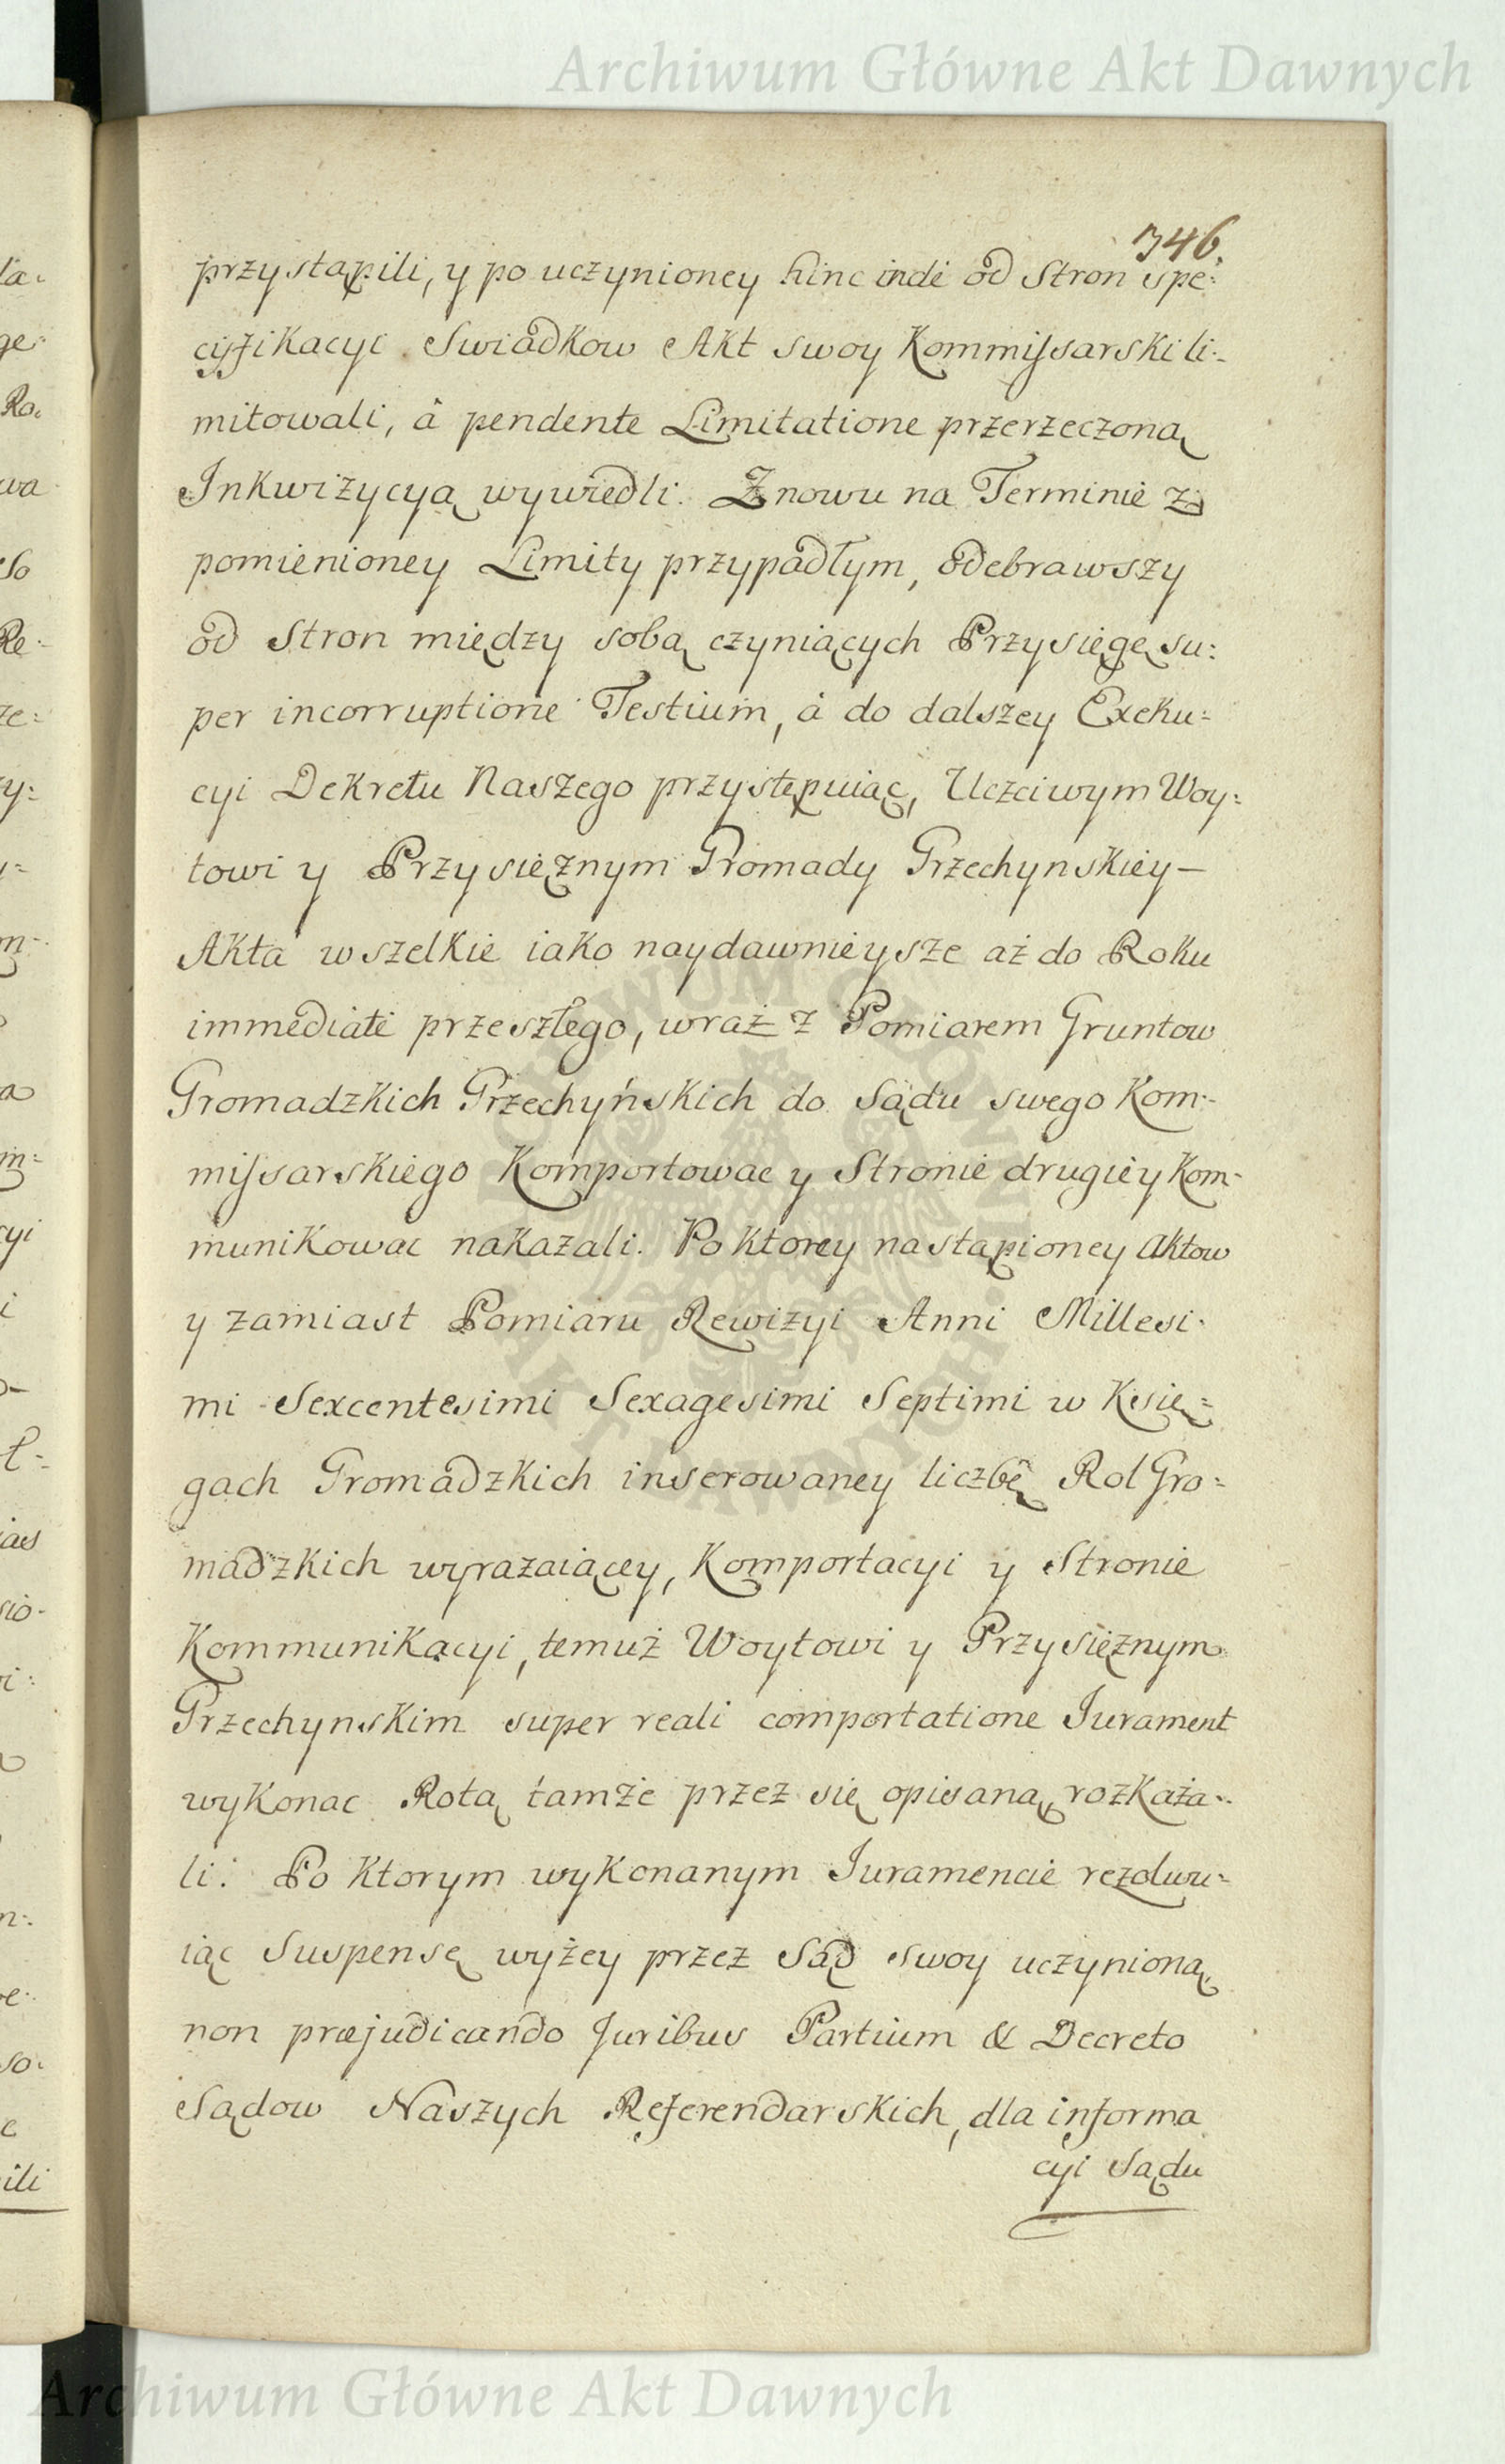 Archiwum Główne Akt Dawnych
346.
przystąpili, y po uczynioney hinc inde od Stron spe:
cyfikacyi Swiadkow Akt swoy Kommissarski li:
mitowali, à pendente Limitatione przerzeczoną
Inkwizycyą wywiedli. Znowu na Terminie z
pomienioney Limity przypadłym, odebrawszy
od Stron między sobą czyniących Przysięgę su:
per incorruptione Testium, à do dalszey Exeku:
cyi Dekretu Naszego przystępuiąc, Uczciwym Woy:
towi y Przysięznym Gromady Grzechynskiey —
Akta wszelkie iako naydawnieysze aż do Roku
immediate przeszłego, wraz z Pomiarem Gruntow
Gromadzkich Grzechyńskich do Sądu swego Kom:
missarskiego Komportowac y Stronie drugiey Kom:
munikowac nakazali. Po ktorey nastąpioney Aktow
y zamiast Pomiaru Rewizyi Anni Millesi:
mi Sexcentesimi Sexagesimi Septimi w Księ:
gach Gromadzkich inserowaney liczbę Rol Gro:
madzkich wyrazaiącey, Komportacyi y Stronie
Kommunikacyi, temuż Woytowi y Przysięznym
Grzechynskim super reali comportatione Jurament
wykonac Rotą tamże przez się opisaną rozkaża:
li. Po ktorym wykonanym Juramencie rezolwu:
iąc Suspensę wyżey przez Sąd swoy uczynioną,
non præjudicando Juribus Partium & Decreto
Sądow Naszych Referendarskich, dla informa
cyi Sądu
Archiwum Główne Akt Dawnych